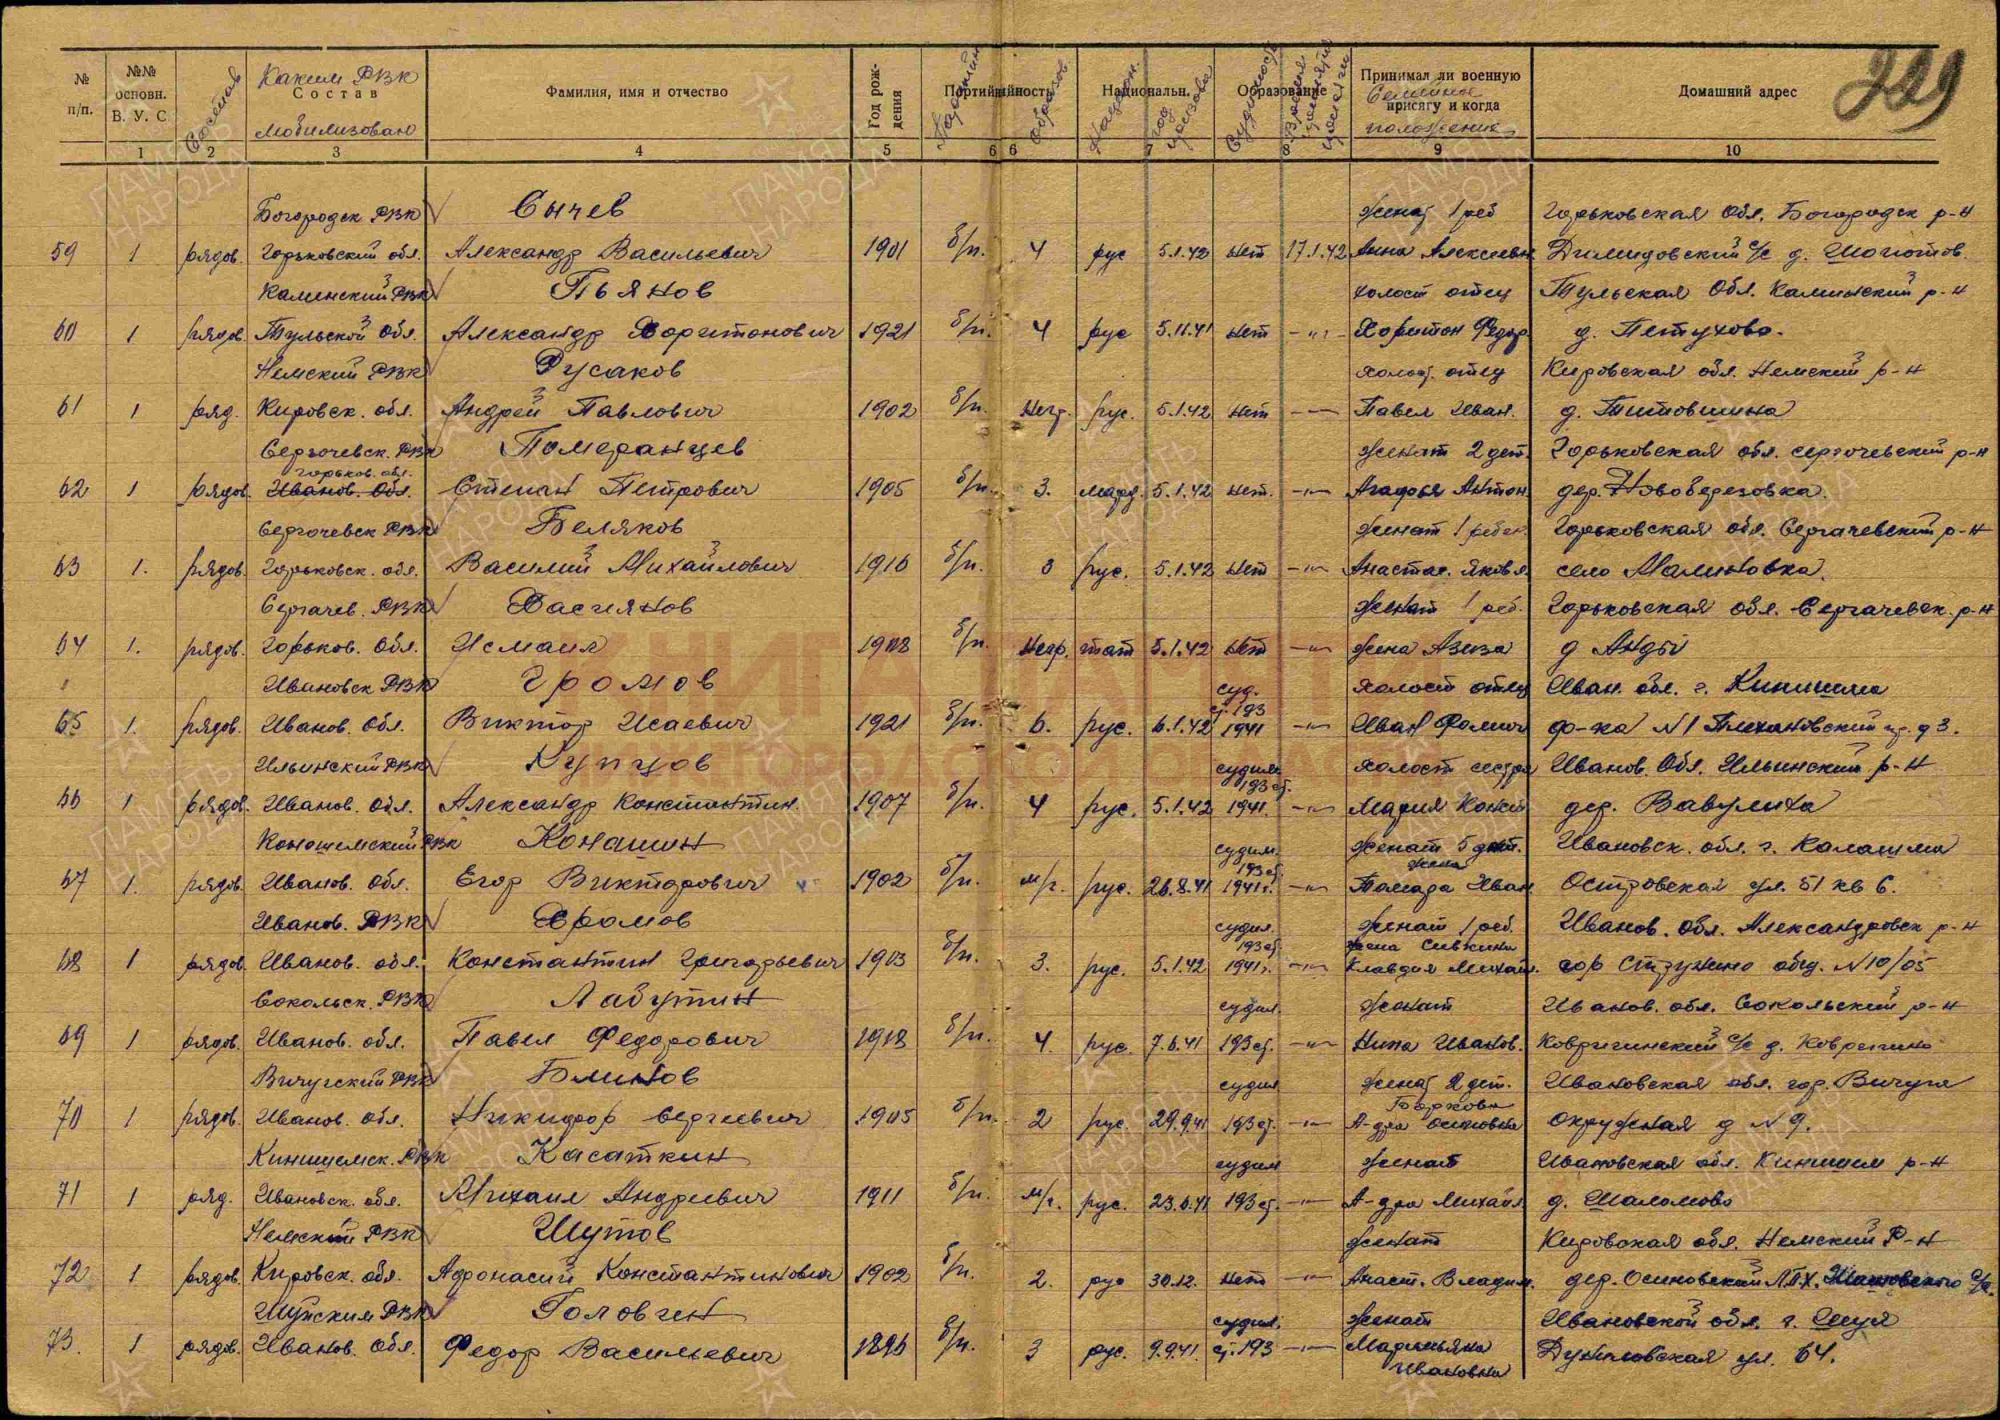 229
№ п/п. №№ основн. В. У. С Состав Каким РВК Состав мобилизован Фамилия, имя и отчество Год рождения Партийность Национальн. Образование Принимал ли военную присягу и когда Домашний адрес
Партийн образов Национ. год призыва Судимость Время принятия присяги Семейное положение
1 2 3 4 5 6 6 7 8 9 10
Богородск РВК Сычев женат 1 реб Горьковская Обл. Богородск р-н
59 1 рядов. Горьковский обл. Александр Васильевич 1901 б/п. 4 рус 5.1.42 нет 17.1.42 Анна Алексеевн. Димидовский с/с д.
Каменский РВК Пьянов холост отец Тульская Обл. Каменский р-н
60 1 рядов. Тульской Обл. Александр Харитонович 1921 б/п. 4 рус 5.11.41 нет -"- Харитон Федор. д. Петухово.
Немский РВК Русаков холост. отец Кировская обл. Немский р-н
61 1 ряд. Кировск. обл. Андрей Павлович 1902 б/п. Негр. рус. 5.1.42 нет -"- Павел Иван. д. Титовщина
Сергочевск. РВК Померанцев женат 2 дет. Горьковская обл. сергочевский р-н
горьков. обл.
62 1 рядов. Иванов. Обл. Степан Петрович 1905 б/п. 3. морд. 5.1.42 нет. -"- Агафья Антон. дер. Новоберезовка.
Сергочевск РВК Беляков женат 1 ребен. Горьковская обл. Сергачевский р-н
63 1. рядов. Горьковск. обл. Василий Михайлович 1916 б/п. 3 рус. 5.1.42 нет -"- Анастас. Яковл. село Малиновка.
Сергачев. РВК Хасиянов женат 1 реб. Горьковская обл. Сергачевск. р-н
64 1. рядов. Горьков. Обл. Исмаил 1908 б/п. Негр. тат 5.1.42 нет -"- жена Азиза д Анды
Ивановск РВК Громов суд. холост отец Иван. обл. г. Кинишма
ст. 193
65 1. рядов. Иванов. Обл. Виктор Исаевич 1921 б/п. 6. рус. 6.1.42 1941 -"- Иван Фомич ф-ка N1 д 3.
Ильинский РВК Купцов судим. холост сестра Иванов. Обл. Ильинский р-н
193 ст.
66 1 рядов. Иванов. Обл. Александр Константин. 1907 б/п. 4 рус. 5.1.42 1941. -"- Мария Конст дер. Вавулиха
РВК Конашин судим. женат 5 дет. Ивановск. обл. г.
193 ст. жена
67 1. рядов. Иванов. Обл. Егор Викторович 1902 б/п. м/г. рус. 26.8.41 1941 г. -"- Тамара Иван Островская ул. 51 кв 6.
Иванов. РВК Фромов судим. женат 1 реб. Иванов. Обл. Александровск р-н
193 ст. жена Сивкина
68 1 рядов. Иванов. обл. Константин Григорьевич 1903 б/п. 3. рус. 5.1.42 1941 г. -"- Клавдия Михайл. гор Струнино общ. N 10/05
Сокольск. РВК Лабутин судим. женат Иванов. обл. Сокольский р-н
69 1 рядов. Иванов. обл. Павел Федорович 1918 б/п. 4. рус. 7.6.41 193 ст. -"- Нина Иванов. Ковригинский с/с д.
Вичугский РВК Блинов судим женат 2 дет. Ивановская обл. гор. Вичуга
70 1 рядов. Иванов. Обл. Никифор Сергеевич 1905 б/п. 2 рус. 29.9.41 193 ст. -"- А-дра Осиповна окружная д N 9.
Кинишемск. РВК Касаткин судим женат Ивановская обл. Кинишем р-н
71 1 ряд. Ивановск. обл. Михаил Андреевич 1911 б/п. м/г. рус. 23.6.41 193 ст. -"- А-дра Михайл д. Шаломово
Немский РВК Шутов женат Кировская обл. Немский Р-н
72 1 рядов. Кировск. обл. Афонасий Константинович 1902 б/п. 2. рус 30.12. нет -"- Анаст. Владим. дер. Осиновский ЛПХ. с/с.
Шуйским РВК Головген судим. женат Ивановской обл. г. Шуя
73. 1 рядов. Иванов. Обл. Федор Васильевич 1896 б/п. 3 рус. 9.9.41. ст. 193 -"- Марияна Дуниловская ул. 64.
Ивановна
ПАМЯТЬ НАРОДА
КНИГА ПАМЯТИ